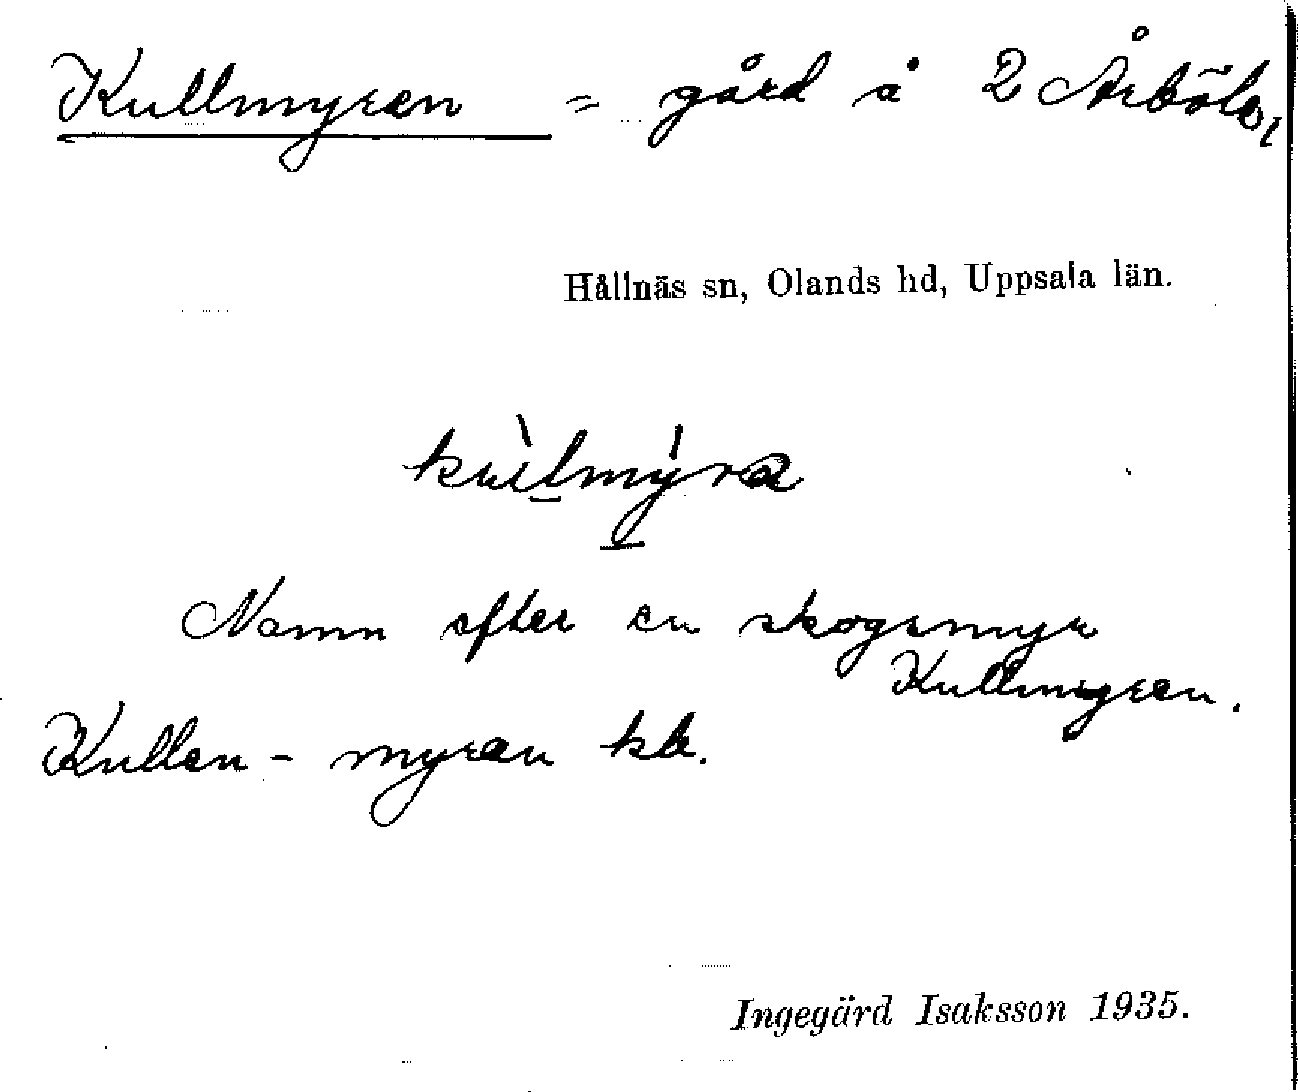 Kullmyren = gård å 2 Årböle,
Hållnäs sn, Olands hd, Uppsala län.
kùlmýra
Namn efter en skogsmyr
Kullmyren.
Kullen - myren kb.
Ingegärd Isaksson 1935.